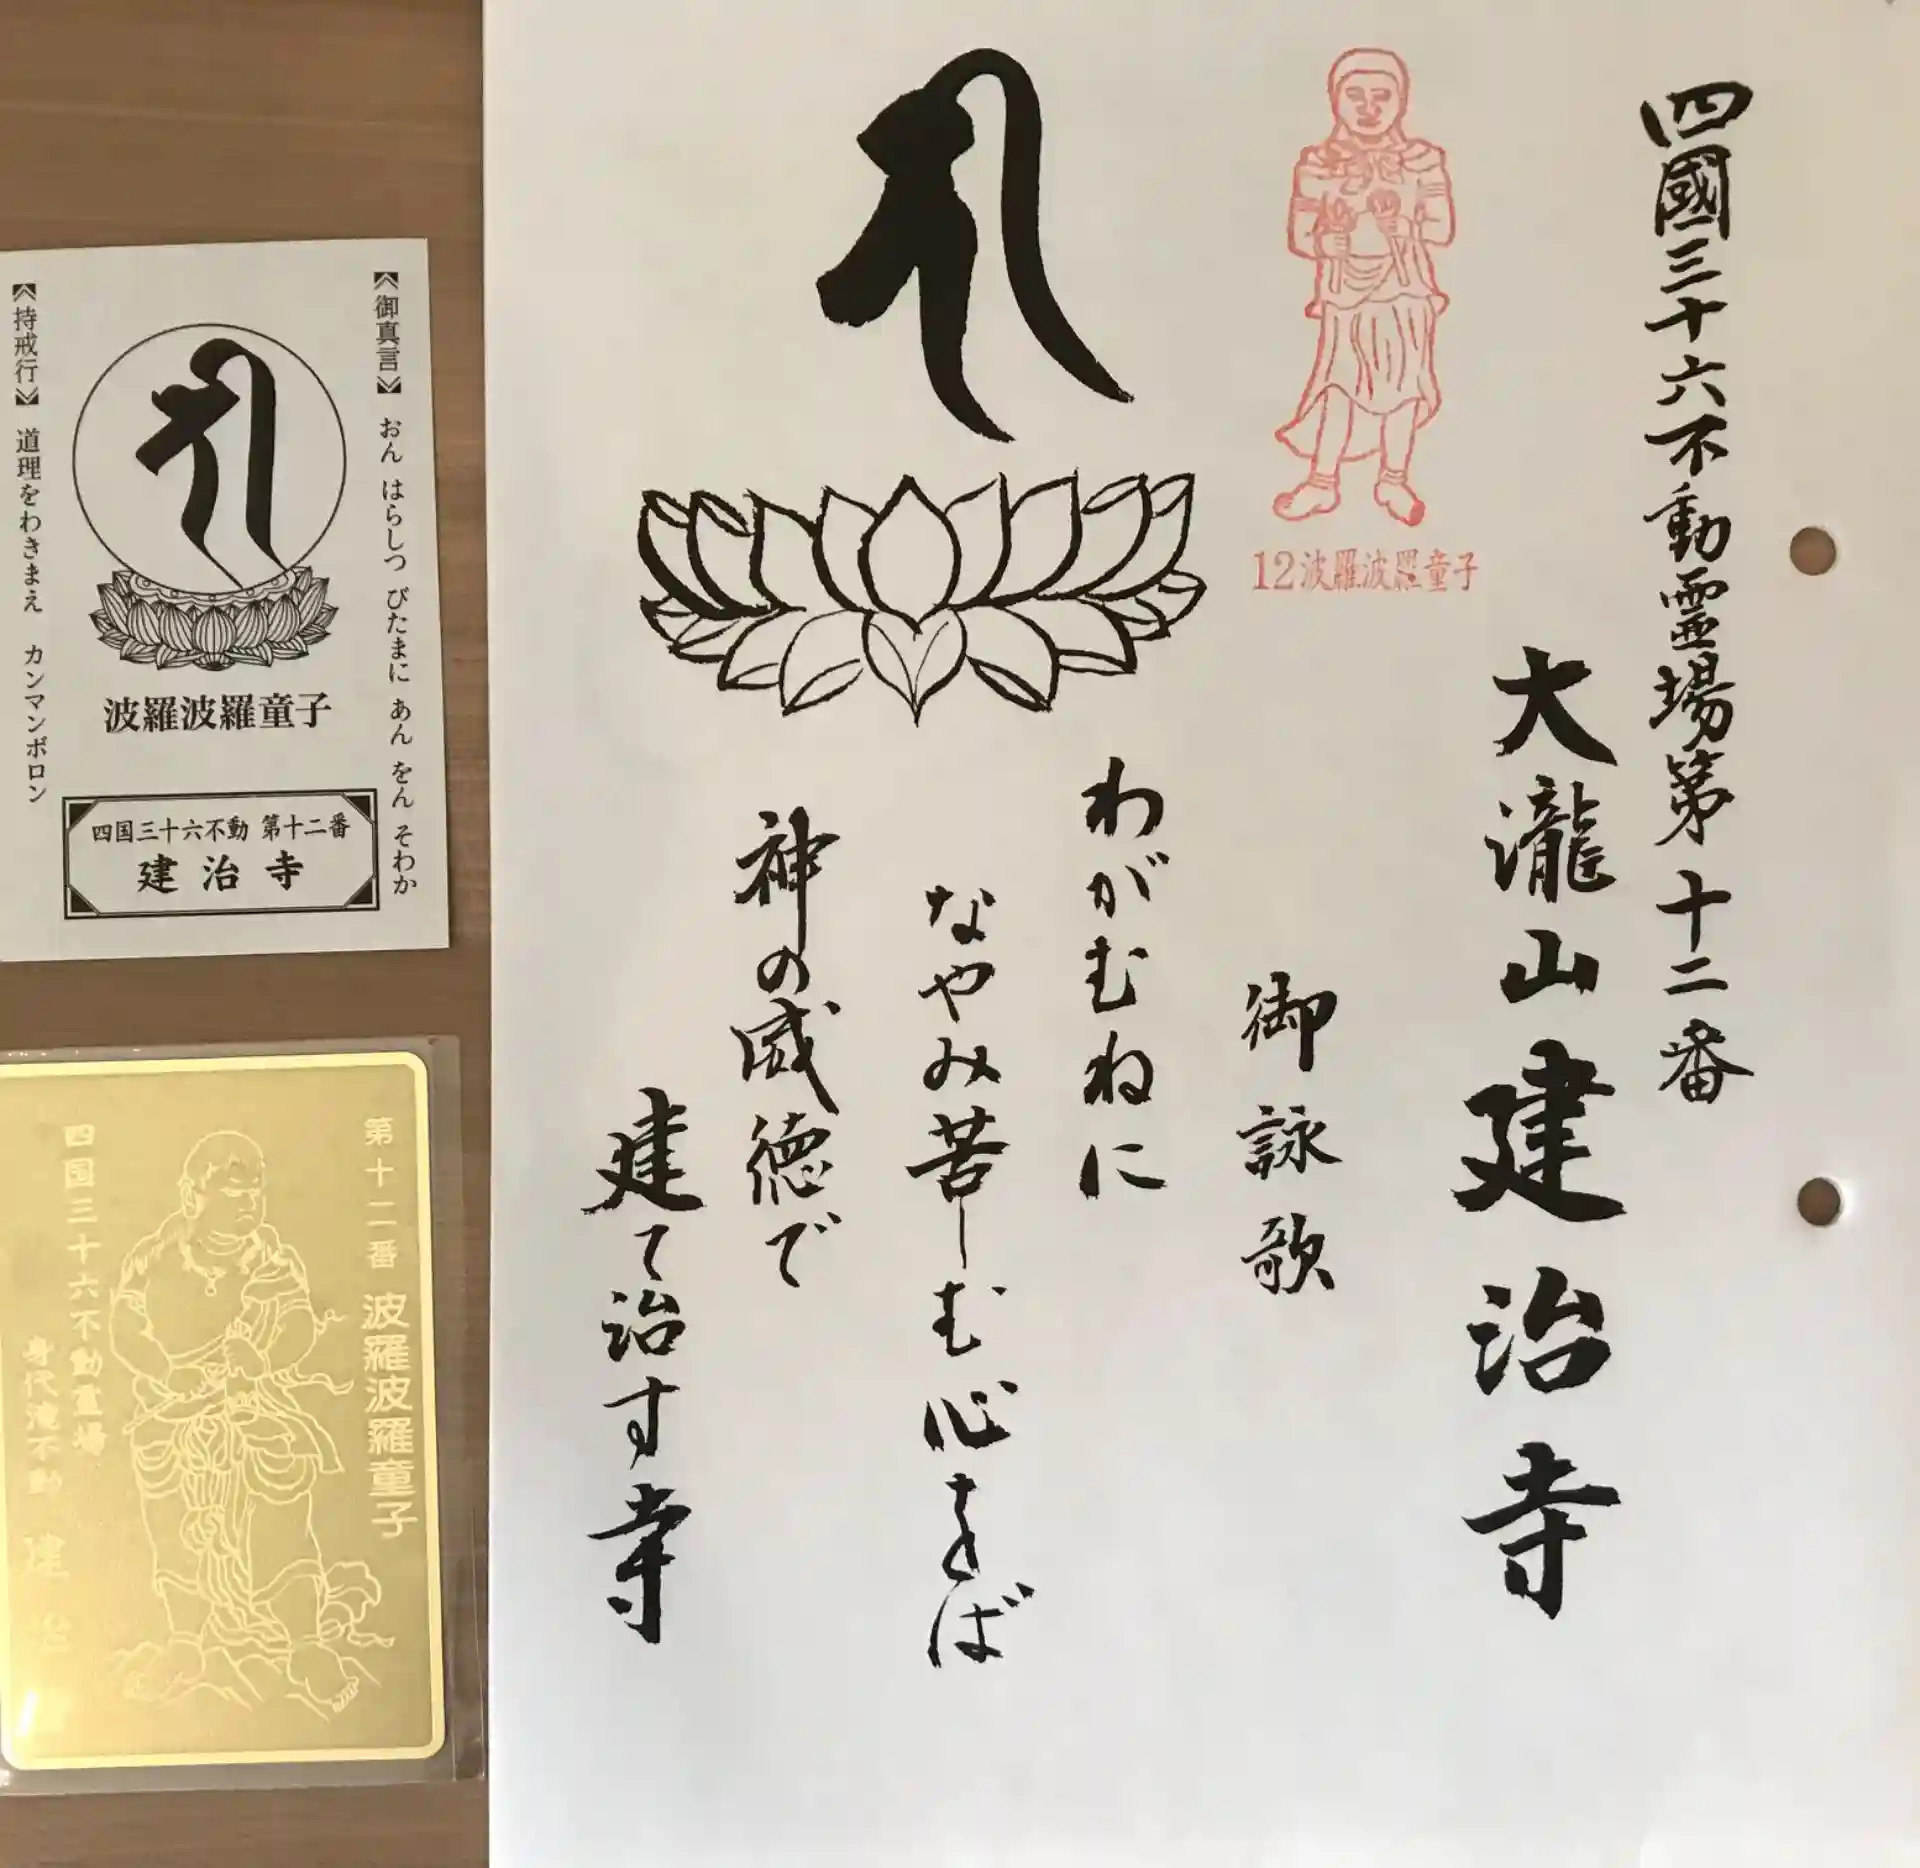 四國三十六不動霊場第十二番
大瀧山建治寺
御詠歌
わがむねに
なやみ苦しむ心をば
神の威徳で
建て治す寺
12波羅波羅童子
《御真言》 おん はらしつ びたまに あん をん そわか
波羅波羅童子
四国三十六不動 第十二番
建治寺
《持戒行》 道理をわきまえ カンマンボロン
第十二番 波羅波羅童子
四国三十六不動霊場
身代滝不動 建治